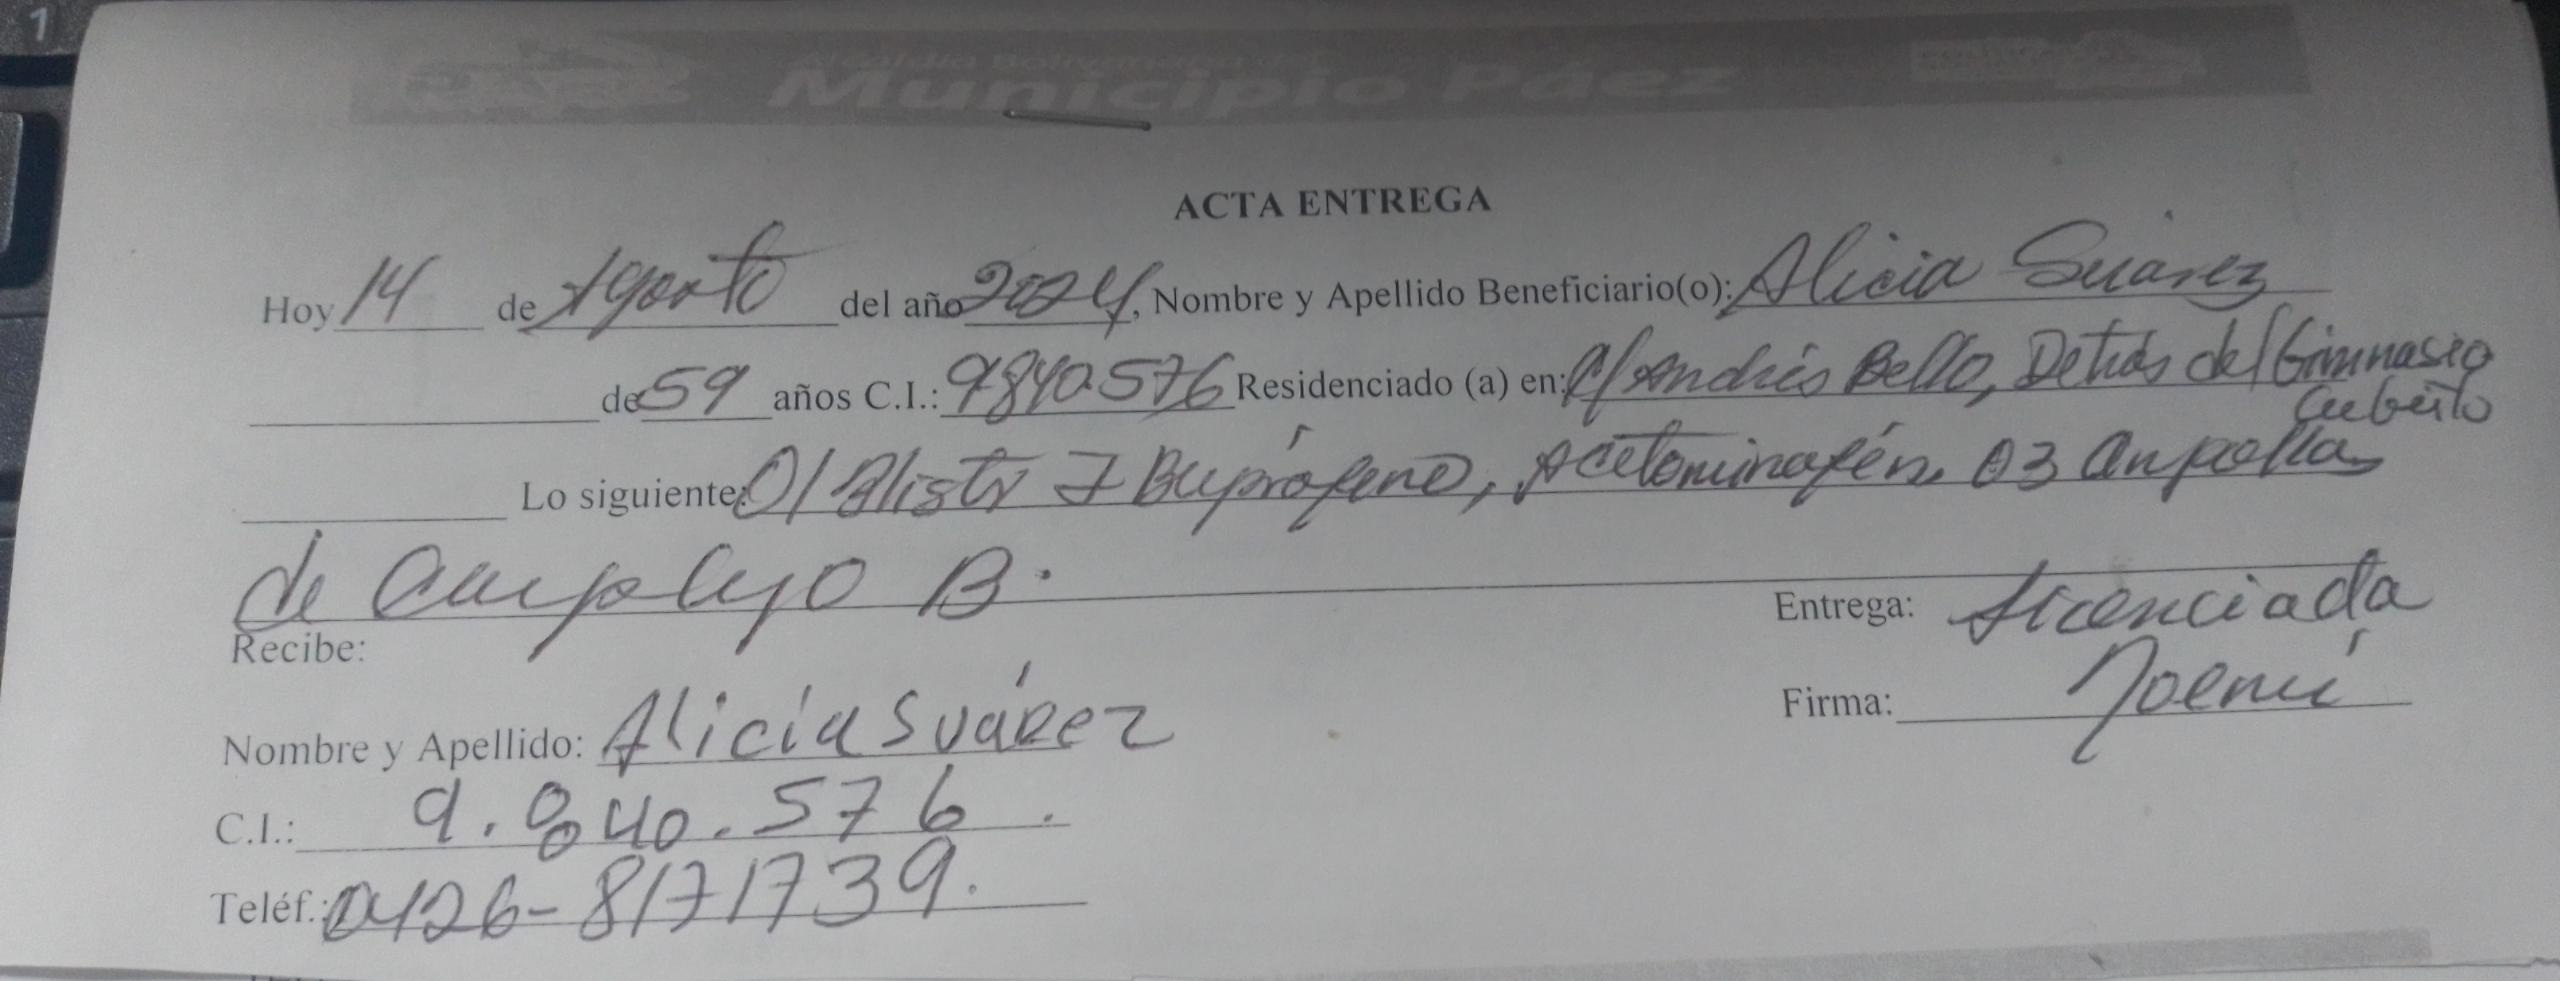 1
Alcaldía Bolivariana del
Municipio Páez
ACTA ENTREGA
Hoy 14 de Agosto del año 2024, Nombre y Apellido Beneficiario(o): Alicia Suárez
de 59 años C.I.: 9840.576 Residenciado (a) en: C/ Andrés Bello, Detrás del Gimnasio
Cubierto
Lo siguiente: 01 Blister Ibuprófeno, Acetominofén. 03 Anpollas
de Complejo B.
Entrega: Licenciada
Recibe:
Firma: Noemí
Nombre y Apellido: Alicia Suárez
C.I.: 9.840.576.
Teléf.: 0426-8171739.